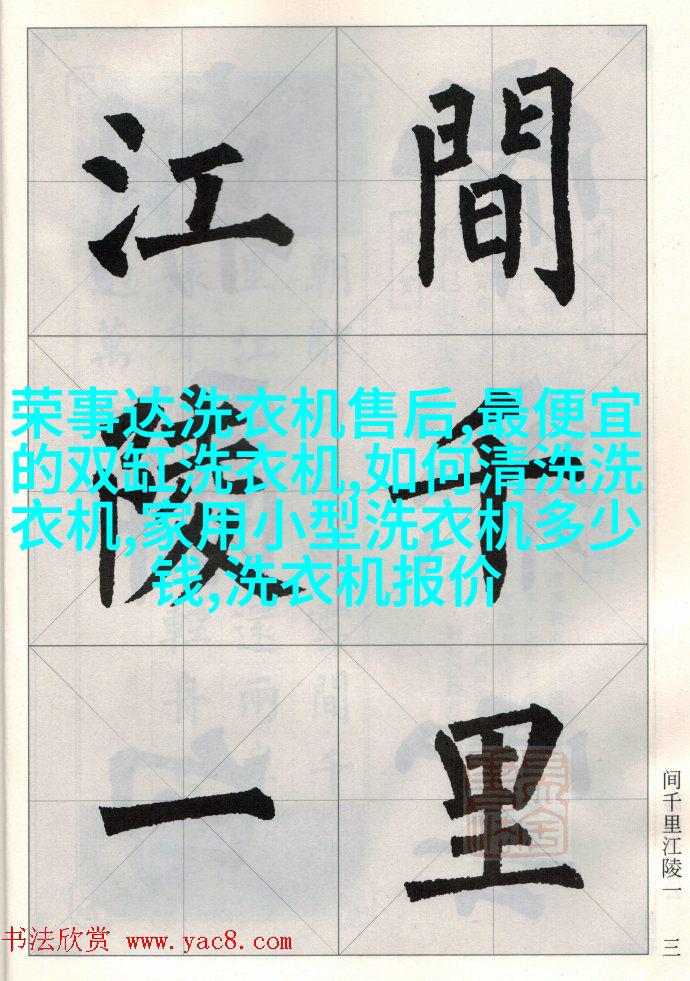 間
千
里
江
陵
一
荣事达洗衣机售后,最便宜
的双缸洗衣机,如何清洗洗
衣机,家用小型洗衣机多少
钱,洗衣机报价
间千里江陵一
三
书法欣赏 www.yac8.com